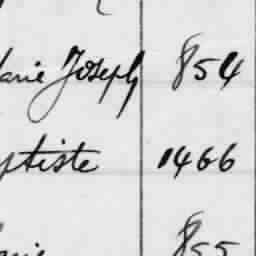 arie Joseph 854
ptiste 1466
arie 855